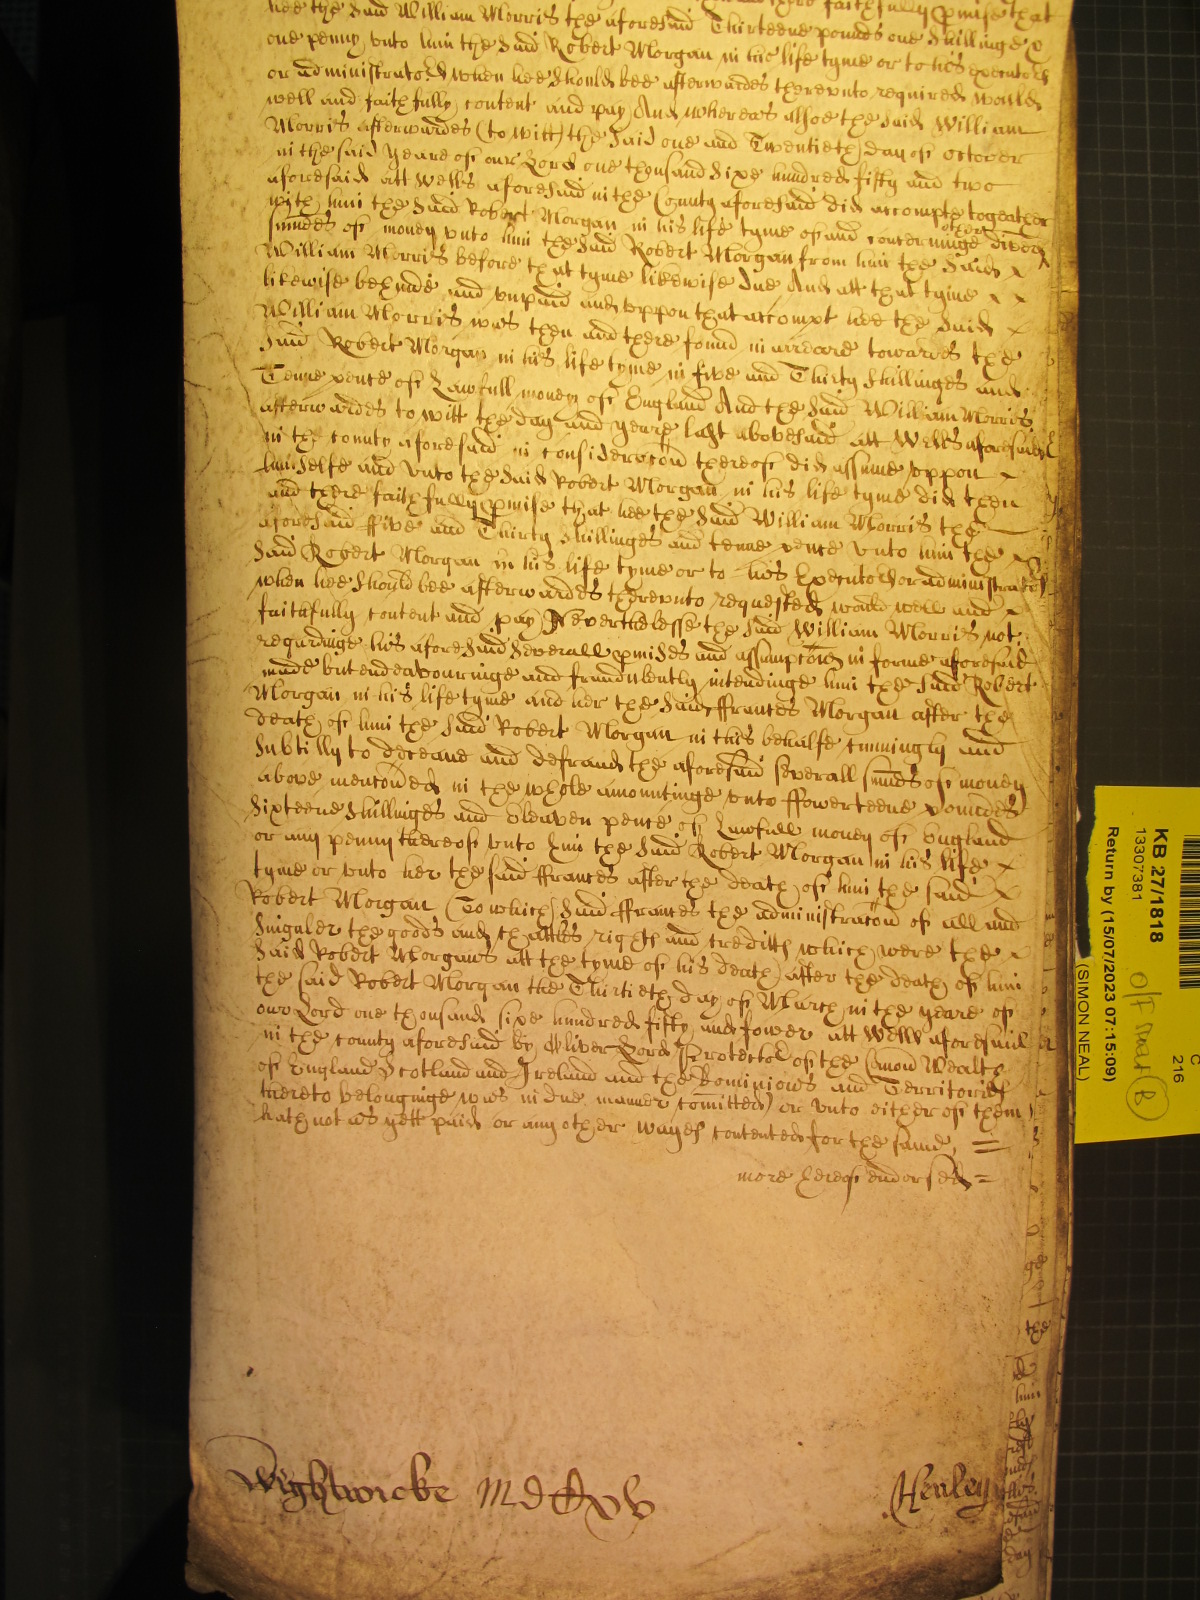 hee the said William Morris the aforesaid Thirteene poundes one shillinge &
one penny unto him the said Robert Morgan in his life tyme or to his executors
or administrators when hee should bee afterwardes thereunto required would
well and faithfully content and pay And whereas alsoe the said William
Morris afterwardes (to witt) the said one and Twentieth day of October
in the said yeare of our Lord one thousand sixe hundred fifty and two
aforesaid att Wells aforesaid in the County aforesaid did accompte togeather
with him the said Robert Morgan in his life tyme of and concerninge other divers
summes of money unto him the said Robert Morgan from him the said x
William Morris before that tyme likewise due And att that tyme x x
likewise behinde and unpaid and uppon that accompt hee the said x
William Morris was then and there found in arreare towardes the
said Robert Morgan in his life tyme in five and Thirty shillinges and
Tenne pence of Lawfull money of England And the said William Morris
afterwardes to witt the day and yeare last abovesaid att Wells aforesaid
in the county aforesaid in consideracon thereof did assume uppon x
himselfe and unto the said Robert Morgan in his life tyme did then
and there faithfully pmise that hee the said William Morris the
aforesaid ffive and Thirty shillinges and tenne pence unto him the x
said Robert Morgan in his life tyme or to his Executors or administrators
when hee should bee afterwardes thereunto requested would well and x
faithfully content and pay Neverthelesse the said William Morris not
regardinge his aforesaid severall pmises and assumpcons in forme aforesaid
made but endeavouringe and fraudulently intendinge him the said Robert
Morgan in his life tyme and her the said ffrances Morgan after the
death of him the said Robert Morgan in this behalfe cunningly and
subtilly to deceave and defraud the aforesaid severall summes of money
above menconed in the whole amountinge unto ffowerteene poundes
sixteene shillinges and Eleaven pence of Lawfull money of England
or any penny thereof unto him the said Robert Morgan in his life x
tyme or unto her the said ffrances after the death of him the said x
Robert Morgan (To which said ffrances the administracon of all and
singuler the goods and chattles rights and creditts which were the x
said Robert Morgans att the tyme of his death after the death of him
the said Robert Morgan the Thirtieth day of March in the yeare of
our Lord one thousand sixe hundred fifty and fower att Wells aforesaid
in the county aforesaid by Oliver Lord Protector of the Comon Wealth
of England Scotland and Ireland and the Dominions and Territories
thereto belonginge was in due manner comitted) or unto either of them
hath not as yett paid or any other wayes contented for the same =
more hereof endorsed =
Wightwicke
Henley
KB 27/1818
13307381
Return by (15/07/2023 07:15:09)
(SIMON NEAL)
216